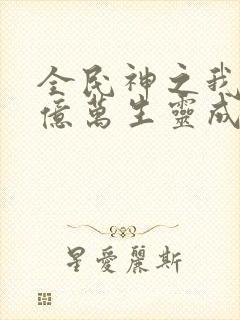 全民神之我
億萬生靈成
星愛麗斯